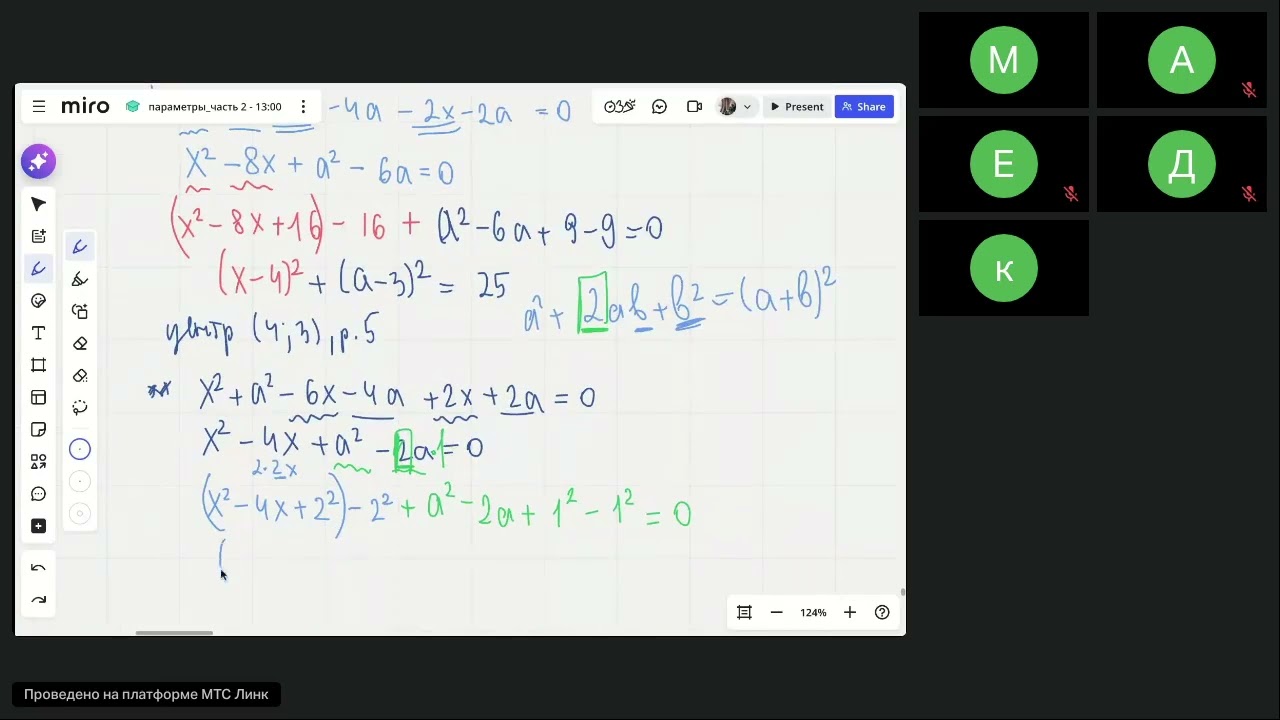 miro параметры_часть 2 - 13:00 Present Share
-4a - 2x - 2a = 0
x² - 8x + a² - 6a = 0
(x² - 8x + 16) - 16 + (a² - 6a + 9 - 9 = 0
(x - 4)² + (a - 3)² = 25
a² + 2ab + b² = (a + b)²
центр (4; 3), р. 5
** x² + a² - 6x - 4a + 2x + 2a = 0
x² - 4x + a² - 2a·1 = 0
2·2x
(x² - 4x + 2²) - 2² + a² - 2a + 1² - 1² = 0
(
T
124%
М
А
Е
Д
к
Проведено на платформе МТС Линк